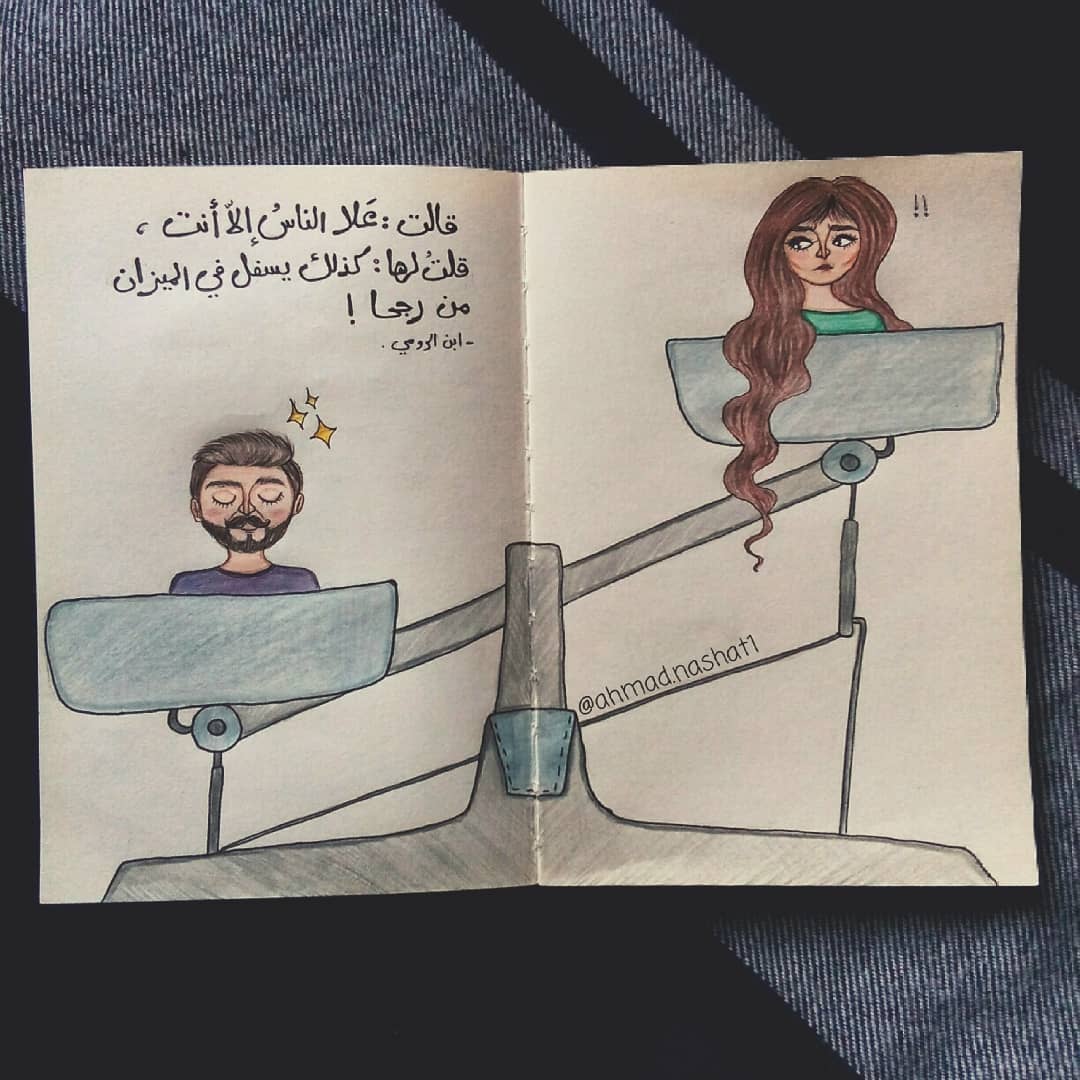 قالت : عَلا الناسُ إلاّ أنت ،
قلتُ لها : كذلك يسفل في الميزان
من رجحا !
- ابن الرومي .
!!
@ahmad.nashat1